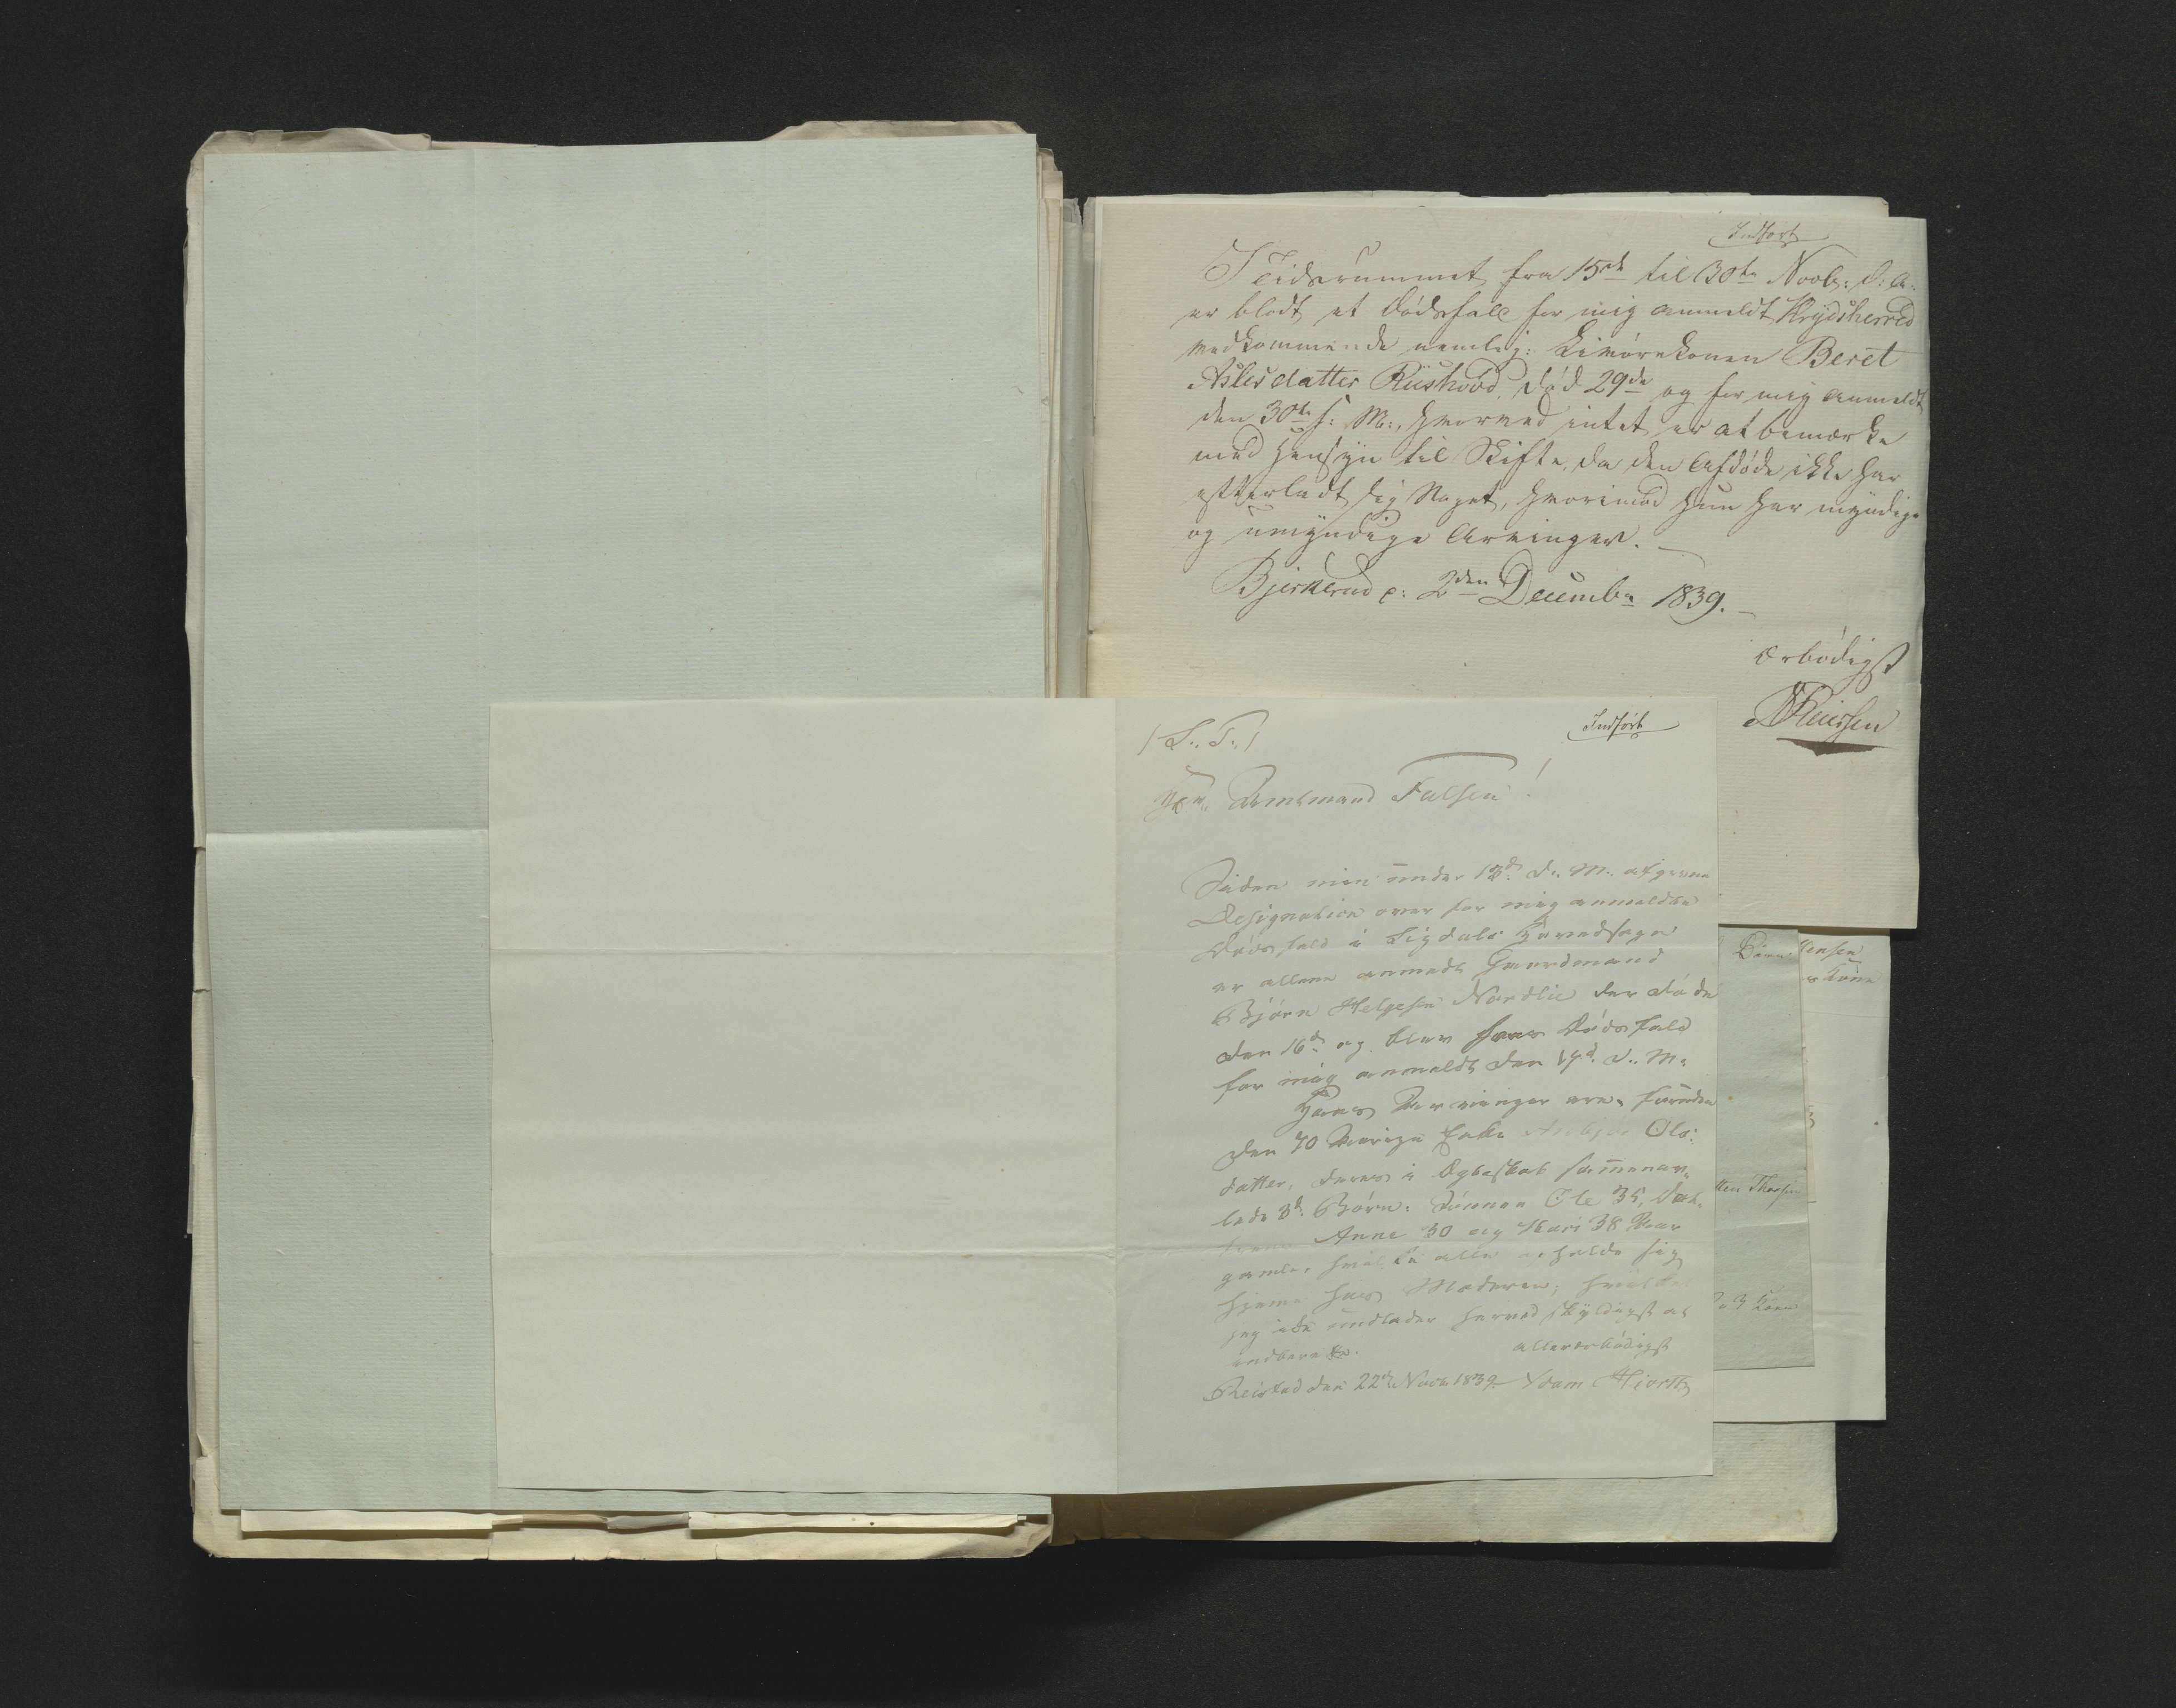 Indført
I Tidsrummet fra 15de til 30te Novbr: d: A:
er blodt et Dødsfall for mig anmeldt Krydsherred
vedkommende nemlig: Livørekonen Beret
Aslesdatter Riishovd, død 29de og for mig anmeldt
den 30te s: M:, hvorved intet er at bemærke
med Hensyn til Skifte, da den Afdøde ikke har
efterladt sig Noget, hvorimod hun har myndige
og umyndige Arvinger.
Bjerkerud d: 2den Decembr 1839.
Ærbødigst
Indført
/ S. T. /
Hr. Amtmand Falsen!
Siden min under 13d. d. M. afgivne
Designation over for mig anmeldte
Dødsfald i Sigdals Hovedsogn
er allene anmedt Gaardmand
Bjørn Helgesen Nordlie der døde
den 16d. og blev hans Dødsfald
for mig anmeldt den 17d. d. M.
Hans Arvinger ere, foruden
den 70 Aarige Enke Ols:
datter, deres i Ægteskab sammenav¬
lede 3de Børn: Sønnen Ole 35, Døt¬
Anne 30 og Kari 38 Aar
gamle, hvilke alle opholde sig
hjeme hos Moderen,
jeg ikke undlader herved skyldigst at
indbere
allerærbødigst
Reistad den 22d Novbr 1839. Adam Hiorth
Børn:
ensen
Køne
tten Thorsen
3 Børn